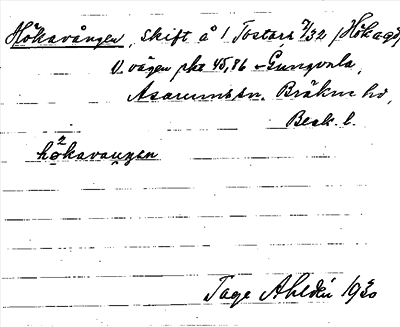 Hökavången, skift å 1 Tostarp 7/32 (Hökagår
V. vägen pkt 45,86 - Gungvala,
Asarums sn. Bräkne hd,
Blek. l.
hökavaŋen
Tage Ahldén 1930